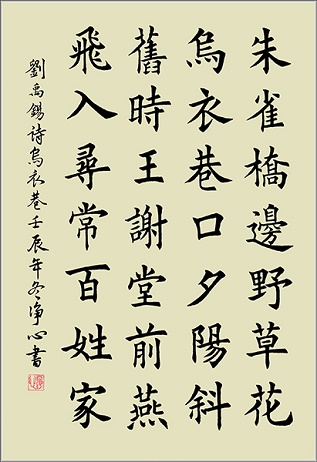 朱雀橋邊野草花
烏衣巷口夕陽斜
舊時王謝堂前燕
飛入尋常百姓家
劉禹錫詩烏衣巷壬辰年冬淨心書